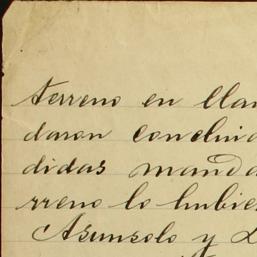 terreno en lla
daron concluid
didas manda
rreno lo hubie
Asunsolo y